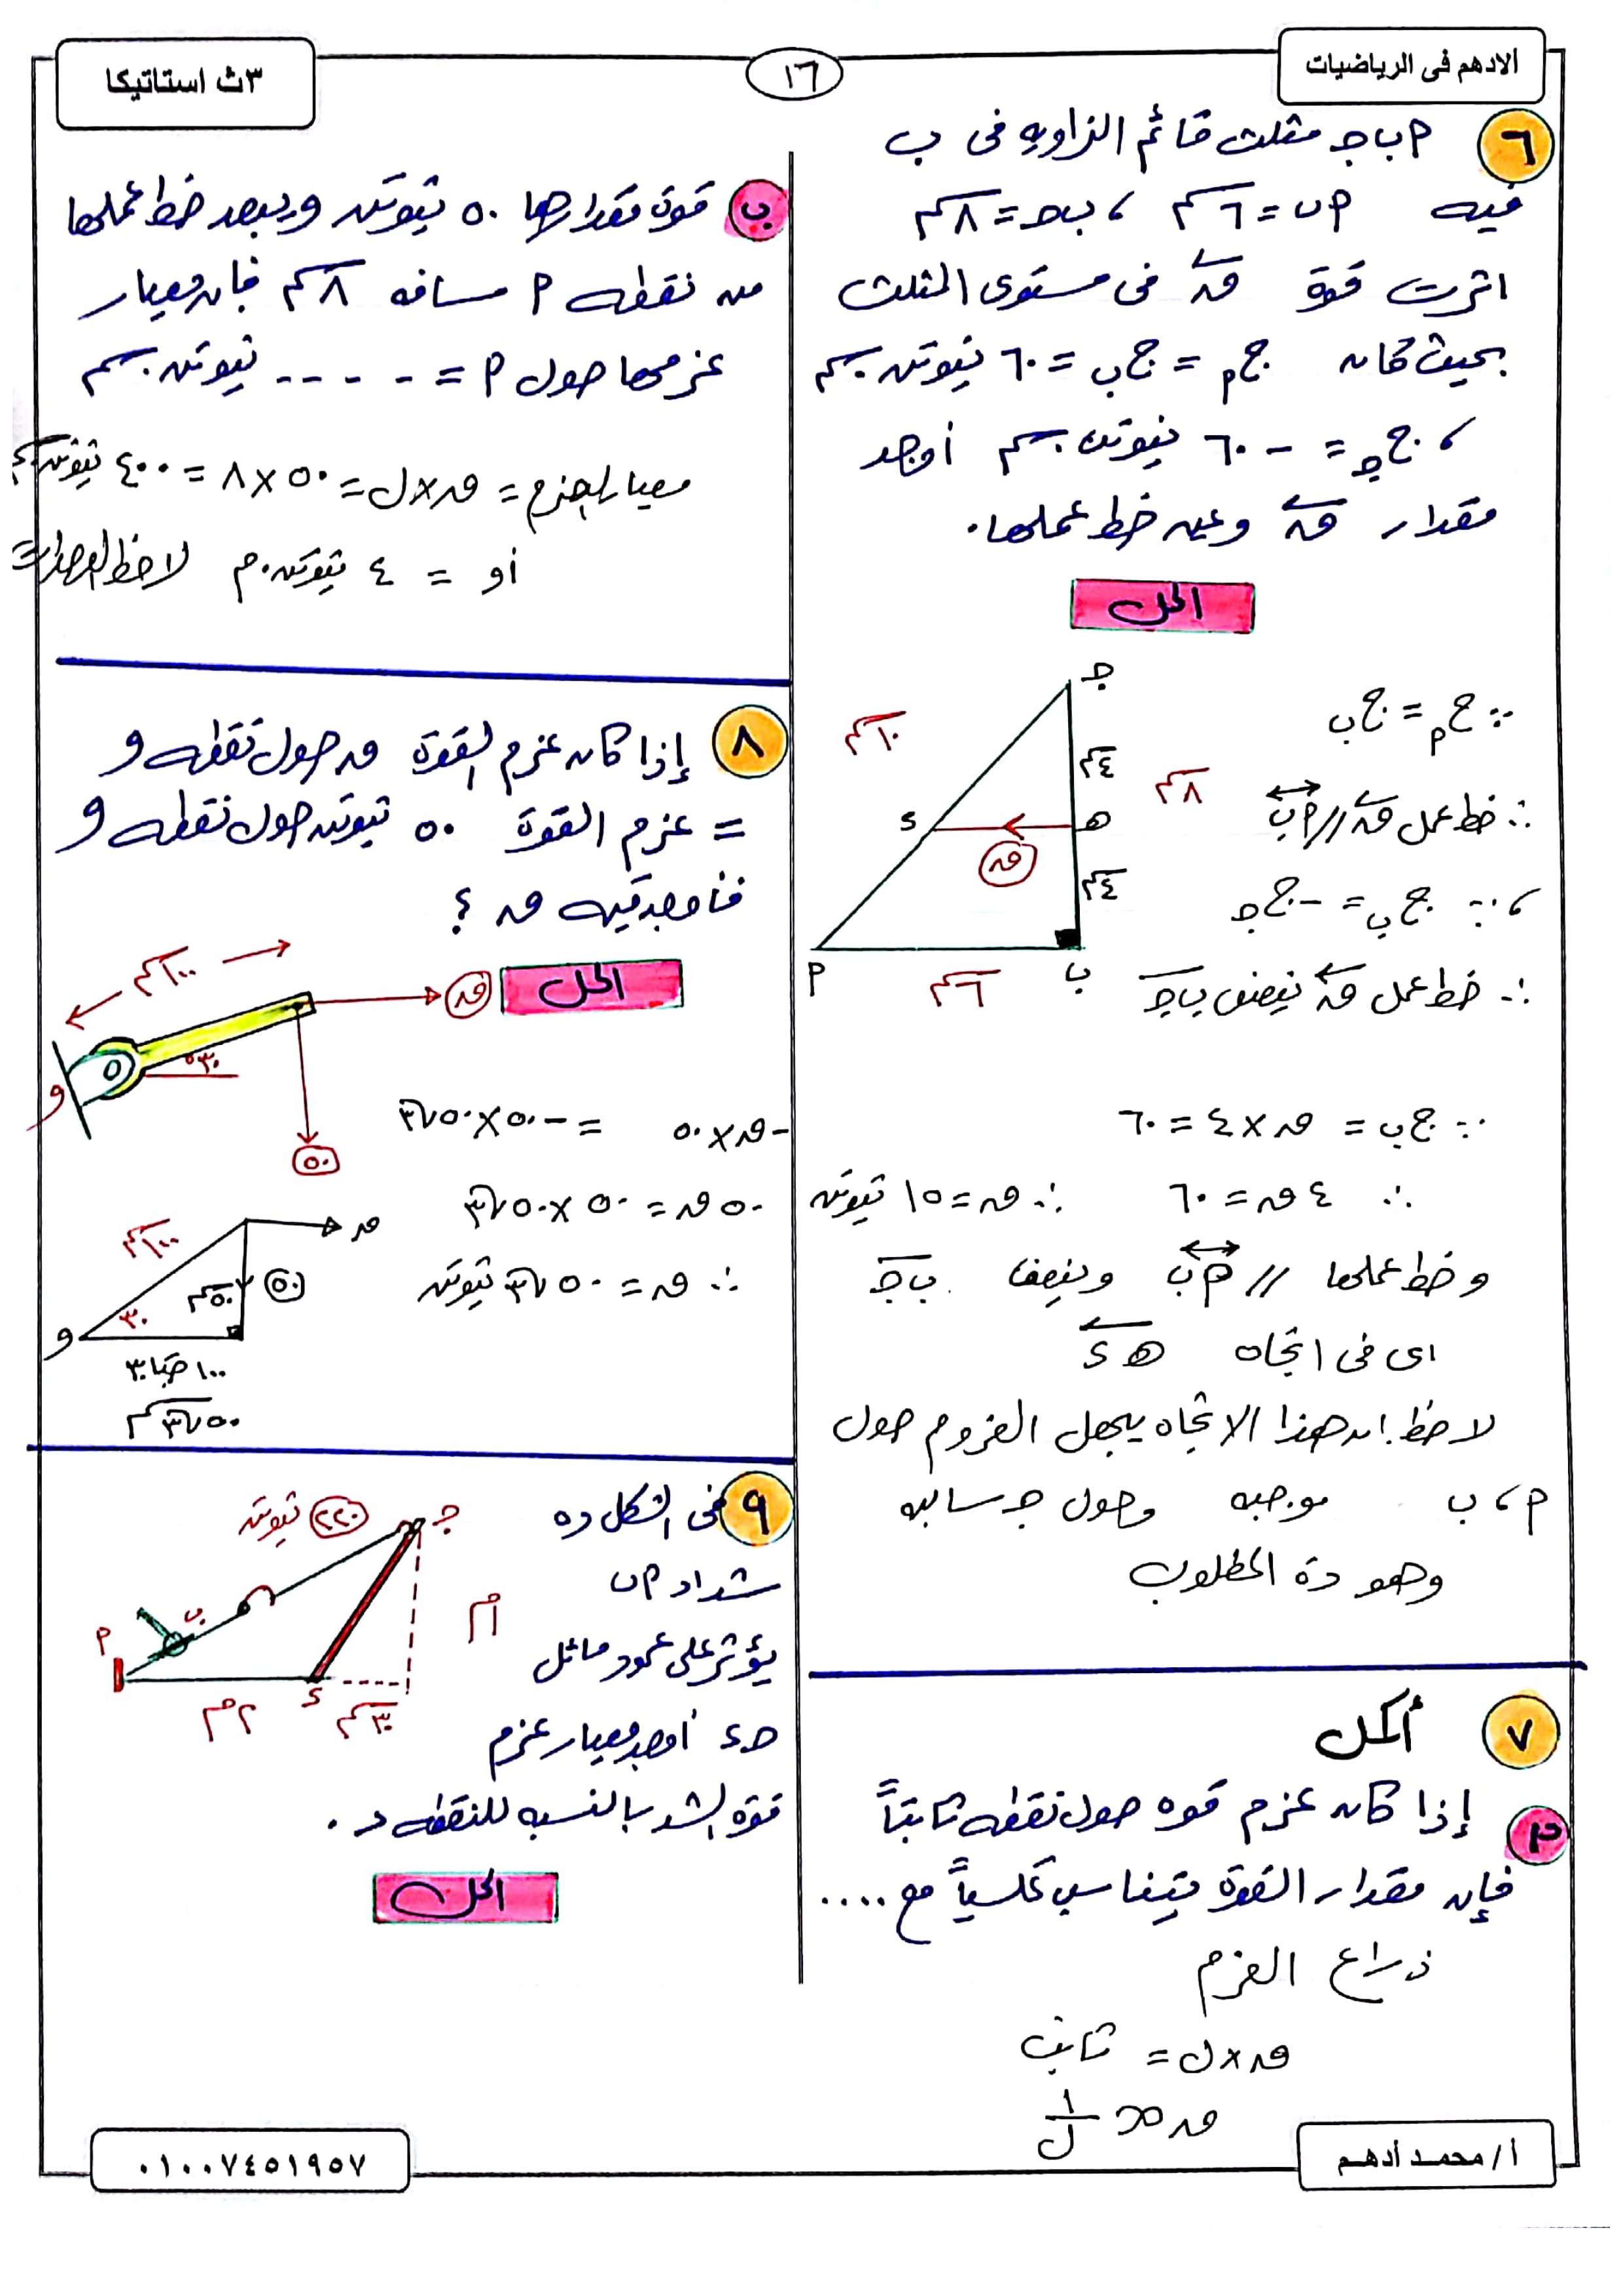 الادهم فى الرياضيات
١٦
٣ث استاتيكا
٦ ‏ P ب جـ مثلث قائم الزاويه فى ب
فيه P ب = ٦ سم ، ب جـ = ٨ سم
اثرت قوة ق فى مستوى المثلث
بحيث كان ج P = ج ب = ٦٠ نيوتن . سم
، ج جـ = - ٦٠ نيوتن . سم أوجد
مقدار ق وعين خط عملها .
الحل
∵ ج P = ج ب
∴ خط عمل ق // P ب
، ∵ ج ب = - ج جـ
∴ خط عمل ق ينصف ب جـ
جـ
١٠ سم
٤ سم
٨ سم
s
هـ
ق
٤ سم
P
٦ سم
ب
∵ ج ب = ق × ٤ = ٦٠
∴ ٤ ق = ٦٠ ∴ ق = ١٥ نيوتن
وخط عملها // P ب وينصف ب جـ
اى فى اتجاه هـ s
لاحظ ان هذا الاتجاه يجعل العزوم حول
P ، ب موجبه وحول جـ سالبه
وهو ده المطلوب
٧ أكمل
P إذا كان عزم قوه حول نقطه ثابتاً
فإن مقدار القوة يتناسب عكسياً مع ....
ذراع العزم
ق × ل = ثابت
ق ∝ ١/ل
ب قوة مقدارها ٥٠ نيوتن ويبعد خط عملها
من نقطه P مسافه ٨ سم فان معيار
عزمها حول P = - - - - نيوتن . سم
معيار العزم = ق × ل = ٥٠ × ٨ = ٤٠٠ نيوتن . سم
أو = ٤ نيوتن . م لاحظ الوحدات
٨ إذا كان عزم القوة ق حول نقطه و
= عزم القوة ٥٠ نيوتن حول نقطه و
فأوجد قيمه ق ؟
الحل
١٠٠ سم
ق
٣٠°
و
٥٠
- ق × ٥٠ = - ٥٠ × ٥٠√٣
٥٠ ق = ٥٠ × ٥٠√٣
∴ ق = ٥٠√٣ نيوتن
١٠٠ سم
ق
٥٠ سم
٥٠
٣٠
و
١٠٠ جتا ٣٠
٥٠√٣ سم
٩ فى الشكل ده
شداد P ب
يؤثر على عمود مائل
جـ s أوجد معيار عزم
قوة الشد بالنسبه للنقطه د .
٢٢٠ نيوتن
جـ
ب
P
١ م
s
٢ م
٣٠ سم
الحل
أ / محمد أدهم
٠١٠٠٧٤٥١٩٥٧